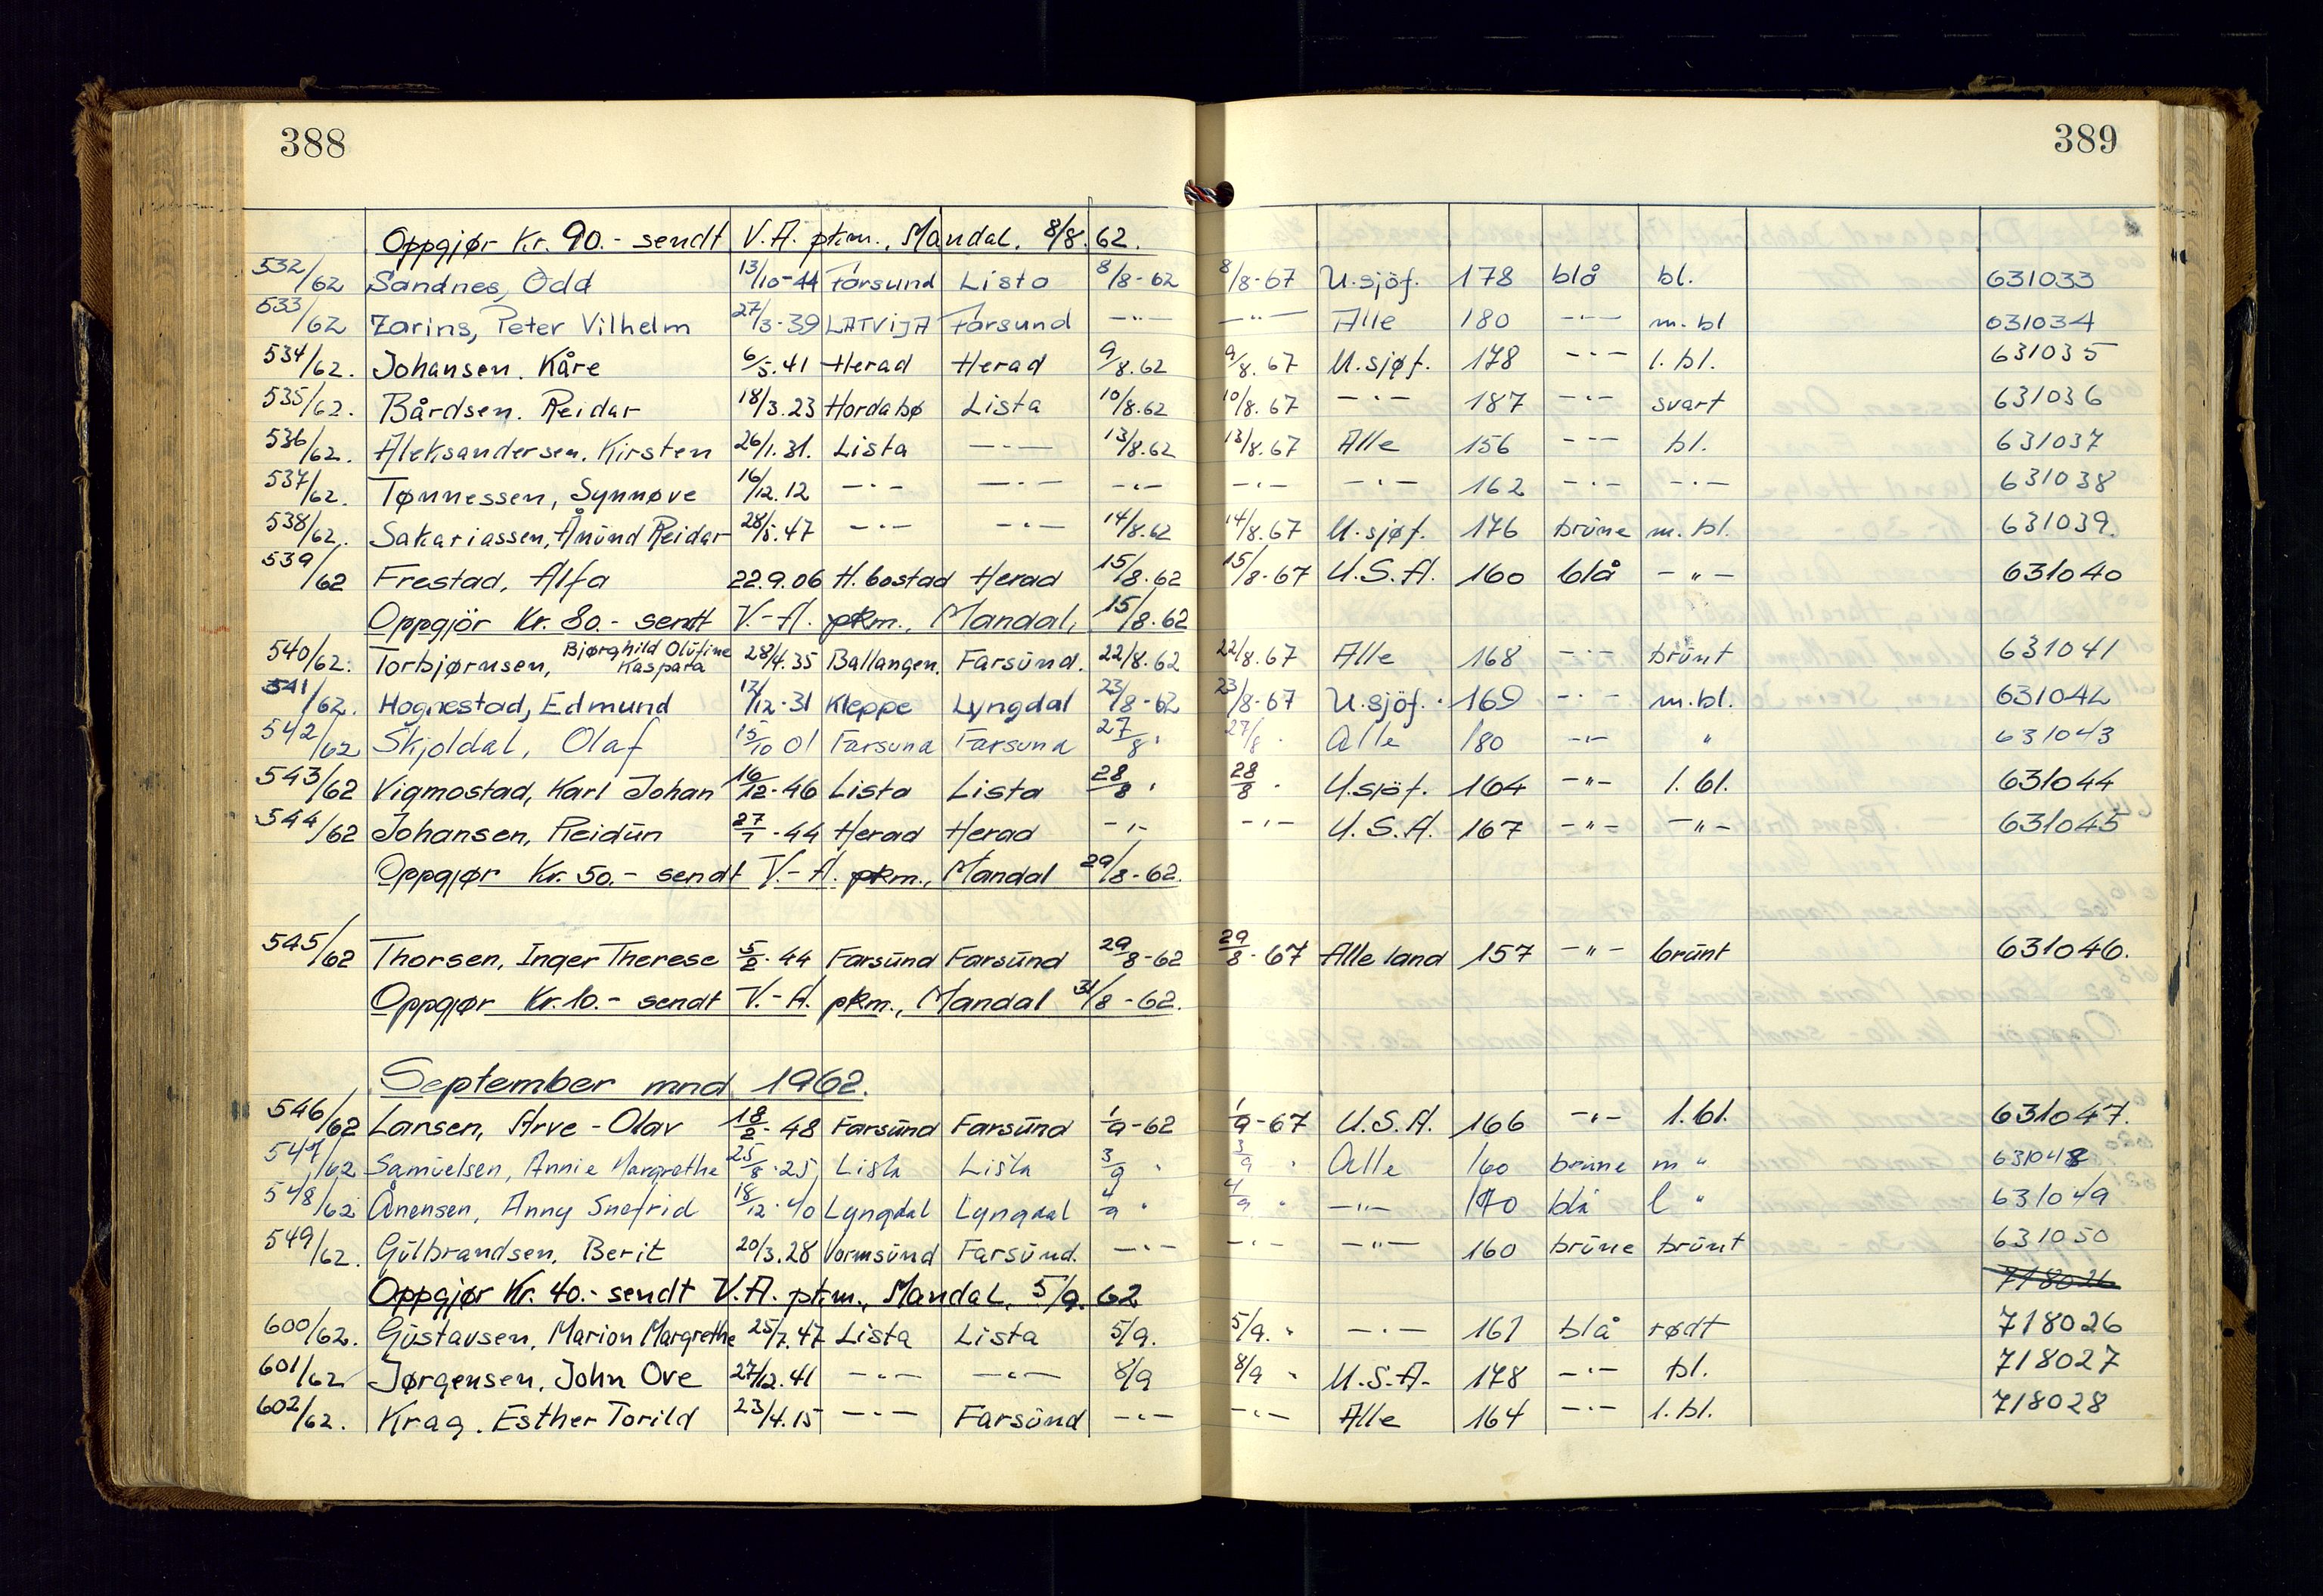 388
389
Oppgjør Kr. 90.- sendt V.A. pkm., Mandal. 8/8.62.
532/62 Sandnes, Odd 13/10-44 Farsund Lista 8/8-62 8/8-67 U.sjöf. 178 blå bl. 631033
533/62 Zarins, Peter Vilhelm 27/3-39 LATVIJA Farsund -"- -"- Alle 180 -"- m.bl 631034
534/62. Johansen. Kåre 6/5.41 Herad Herad 9/8.62 9/8.67 U.sjøf. 178 -"- l.bl. 631035
535/62. Bårdsen. Reidar 18/3.23 Hordabø Lista 10/8.62 10/8.67 -"- 187 -"- svart 631036
536/62. Aleksandersen. Kirsten 26/1.31. Lista -"- 13/8.62 13/8.67 Alle 156 -"- bl. 631037
537/62. Tønnessen, Synnøve 16/12.12 -"- -"- -"- -"- -"- 162 -"- -"- 631038
538/62. Sakariassen, Ånund Reidar 28/5.47 -"- -"- 14/8.62 14/8.67 U.sjøf. 176 brune m.bl. 631039.
539/62 Frestad, Alfa 22.9.06 H.bostad Herad 15/8.62 15/8-67 U.S.A. 160 blå -"- 631040
Oppgjör Kr. 80.- sendt V.-A. pkm., Mandal, 15/8.62
540/62. Torbjørnsen, Bjørghild Olufine Kaspara 28/4.35 Ballangen. Farsund. 22/8.62 22/8.67 Alle 168 -"- brunt 631041
541/62. Hognestad, Edmund 12/12-31 Kleppe Lyngdal 23/8-62 23/8-67 U.sjöf. 169 -"- m.bl. 631042
542/62 Skjoldal, Olaf 15/10 01 Farsund Farsund 27/8 " 27/8 " Alle 180 -"- " 631043
543/62 Vigmostad, Karl Johan 16/12-46 Lista Lista 28/8 " 28/8 " U.sjöf. 164 -"- l.bl. 631044
544/62 Johansen, Reidun 27/7-44 Herad Herad -"- -"- U.S.A. 167 -"- -"- 631045
Oppgjør Kr. 50.- sendt V.-A. pkm., Mandal 29/8-62.
545/62 Thorsen, Inger Therese 5/2-44 Farsund Farsund 29/8-62 29/8-67 Alle land 157 -"- brunt 631046.
Oppgjør Kr. 10.- sendt V.-A. pkm., Mandal 31/8-62.
September mnd. 1962.
546/62 Larsen, Arve-Olav 18/2-48 Farsund Farsund 1/9-62 1/9-67 U.S.A. 166 -"- l.bl. 631047.
547/62 Samuelsen, Annie Margrethe 25/8.25 Lista Lista 3/9 " 3/9 " Alle 160 brune m " 631048
548/62 Ånensen, Anny Snefrid 18/12.40 Lyngdal Lyngdal 4/9 " 4/9 " -"- 170 blå l " 631049
549/62. Gulbrandsen, Berit 20/3.28 Vormsund Farsund. -"- -"- -"- 160 brune brunt 631050
Oppgjør Kr. 40.- sendt V.A. pkm., Mandal. 5/9.62 718026
600/62. Gustavsen, Marion Margrethe 25/7.47 Lista Lista 5/9. 5/9. " -"- 161 blå rødt 718026
601/62 Jørgensen, John Ove 27/12.41 -"- -"- 8/9 8/9 " U.S.A. 178 -"- bl. 718027
602/62. Krag. Esther Torild 23/4.15 -"- Farsund -"- -"- Alle 164 -"- l.bl. 718028